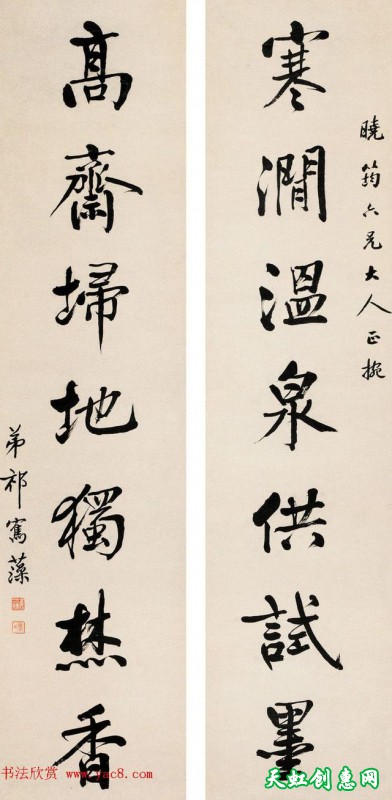 曉筠六兄大人正捥
寒澗温泉供試墨
高齋埽地獨焚香
弟祁寯藻
书法欣赏
天虹创意网